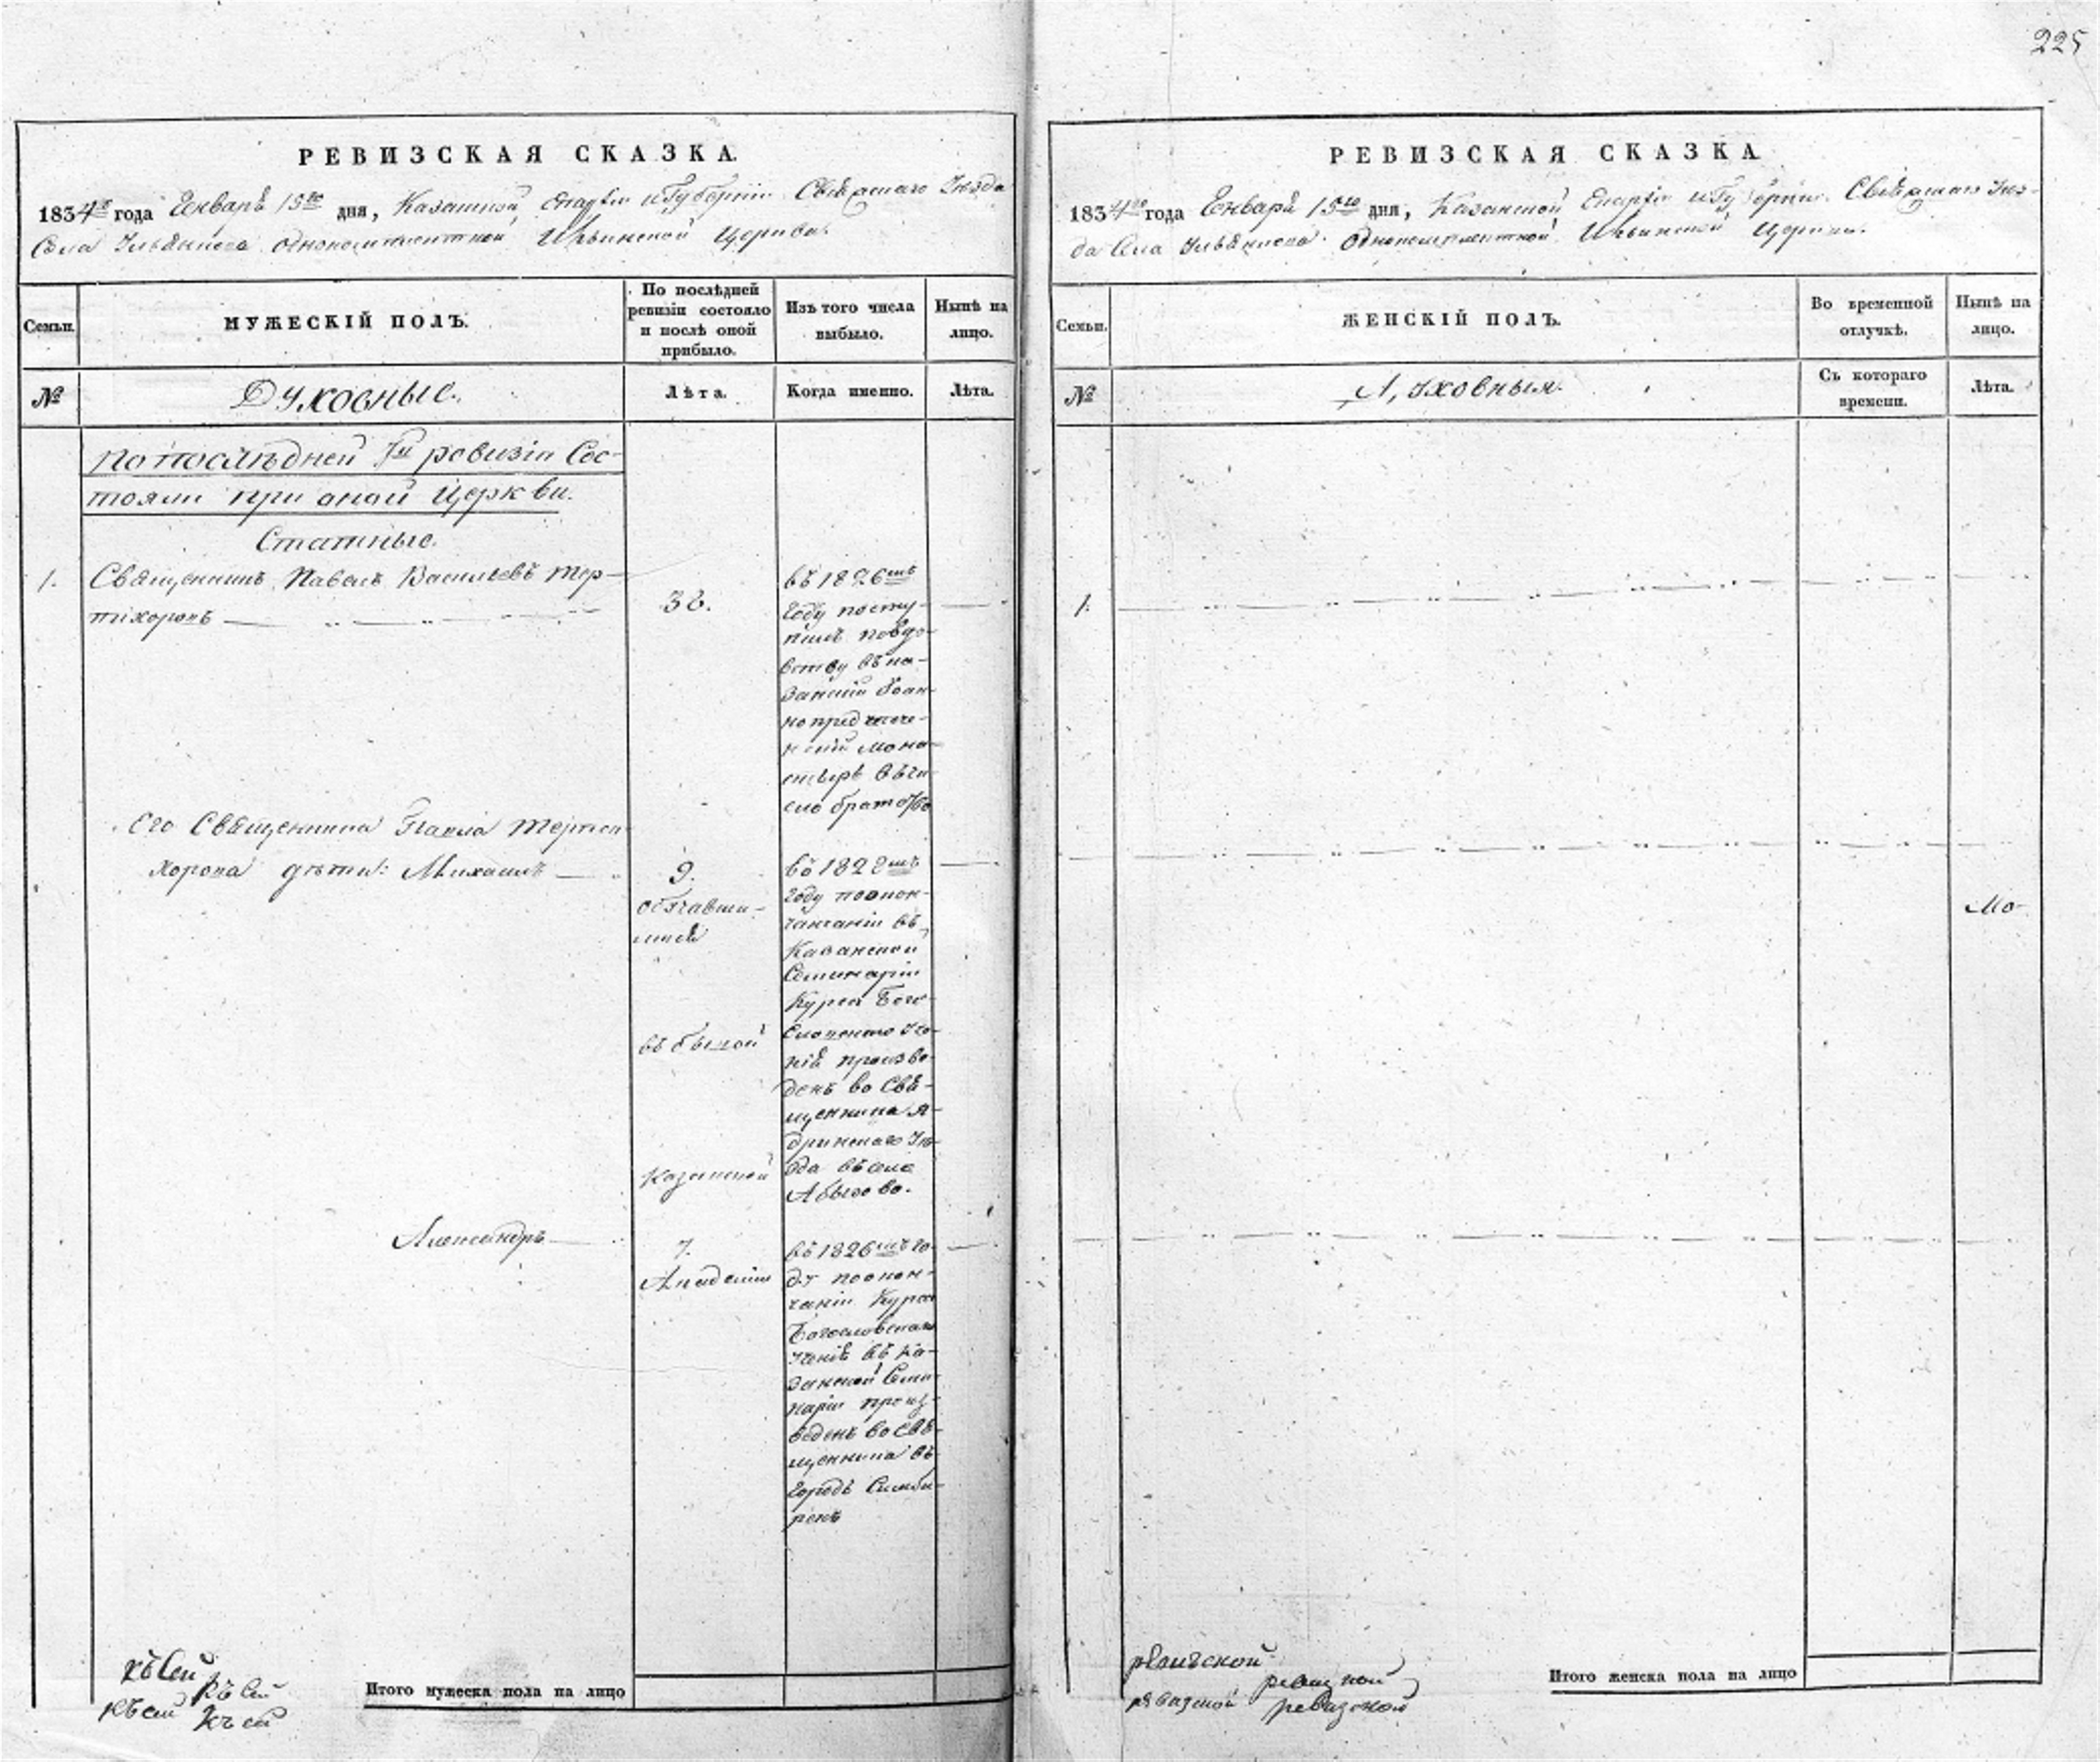 225
РЕВИЗСКАЯ СКАЗКА.
1834го года Генваря 15го дня, Казанской Епархіи и Губерніи Свіяжскаго Уезда
Села Ильинской Церкви.
Семьи.
МУЖЕСКІЙ ПОЛЪ.
По послѣдней ревизіи состояло и послѣ оной прибыло.
Изъ того числа выбыло.
Нынѣ на лицо.
№
Духовные.
Лѣта.
Когда именно.
Лѣта.
по послѣдней 7й ревизіи Сос-
тояли при оной Церкви.
Статные.
1.
Священникъ Павелъ Васильевъ
38.
въ 1826мъ
году посту-
пилъ по вдо-
вству въ Ка-
занскій Іоан-
нопредтече-
нскій мона-
стырь въ чи-
сло братства
Его Священника Павла
дѣти: Михаилъ
9.
обучавши-
міся
въ бывшой
Казанской
въ 1828мъ
году по окон-
чаніи въ
Казанской
Семинаріи
Курса Бого-
словскаго Уче-
нія произве-
денъ во Свя-
щенника Я-
дринскаго Уѣ-
зда въ село
Абызово.
Александръ
7.
Академіи
въ 1826мъ го-
ду по окон-
чаніи Курса
Богословскаго
Ученія въ Ка-
занской Семи-
наріи произ-
веденъ во Свя-
щенника въ
городъ Симби-
рскъ
къ сей
къ сей
къ сей
къ сей
Итого мужеска пола на лицо
РЕВИЗСКАЯ СКАЗКА
1834го года Генваря 15го дня, Казанской Епархіи и Губерніи. Свіяжскаго Уез-
да Села Ильинской Церкви.
Семьи.
ЖЕНСКІЙ ПОЛЪ.
Во временной отлучкѣ.
Нынѣ на лицо.
№
Духовныя.
Съ котораго времени.
Лѣта.
1.
ревизской
ревизской
ревизской
ревизской
Итого женска пола на лицо